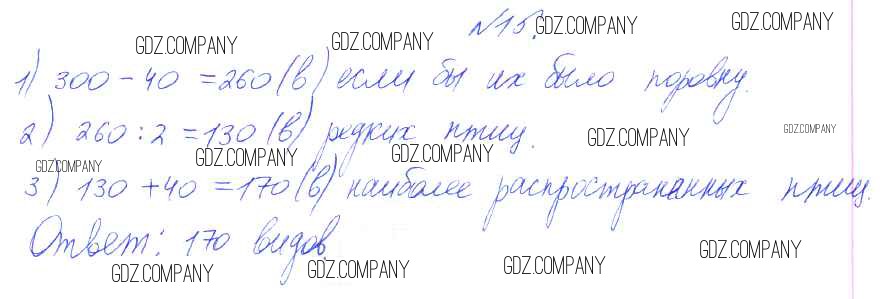 №15.
GDZ.COMPANY GDZ.COMPANY GDZ.COMPANY GDZ.COMPANY
1) 300 - 40 = 260 (в) если бы их было поровну.
GDZ.COMPANY GDZ.COMPANY GDZ.COMPANY GDZ.COMPANY
2) 260 : 2 = 130 (в) редких птиц.
GDZ.COMPANY GDZ.COMPANY GDZ.COMPANY GDZ.COMPANY
3) 130 + 40 = 170 (в) наиболее распространанных птиц.
Ответ: 170 видов.
GDZ.COMPANY GDZ.COMPANY GDZ.COMPANY GDZ.COMPANY